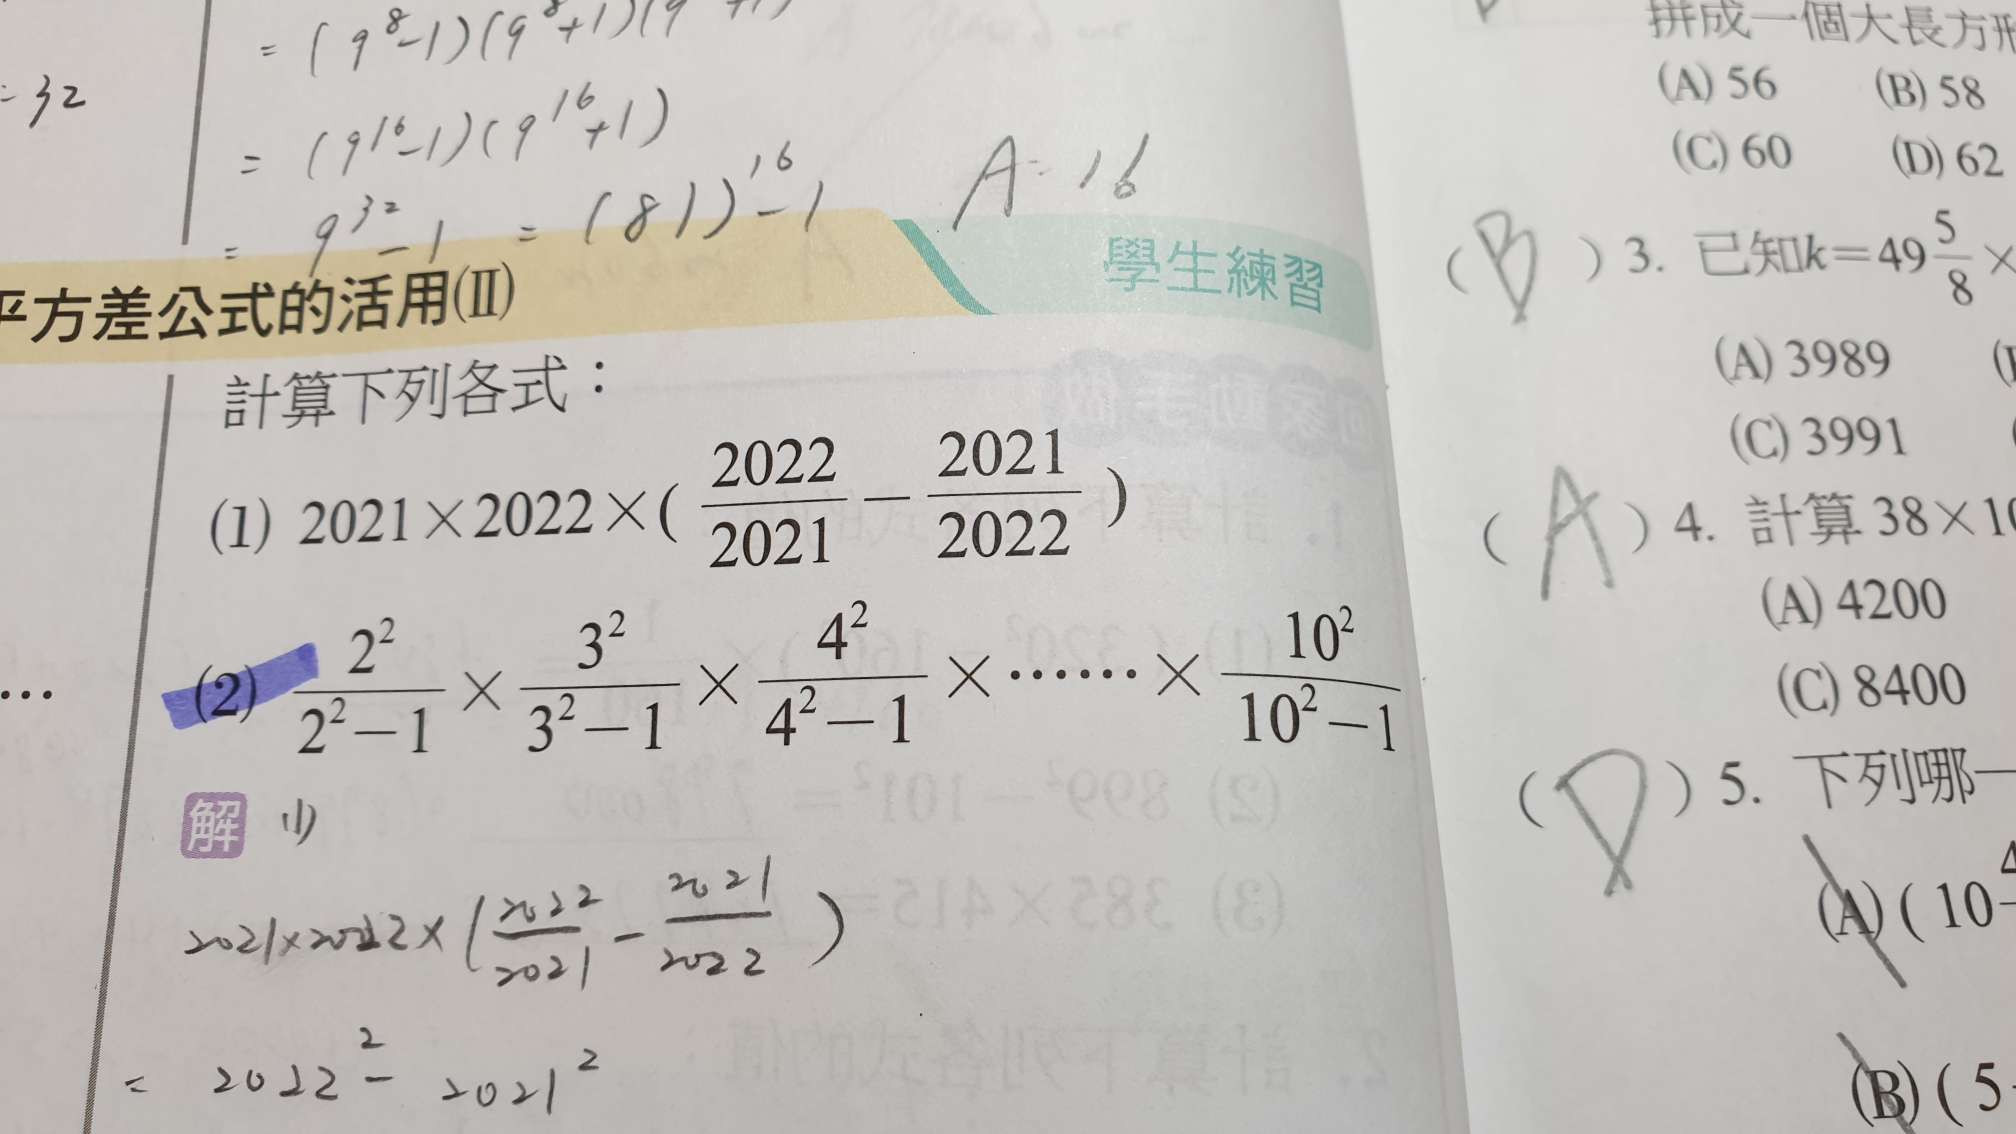 =32
= (9⁸-1)(9⁸+1)(9
= (9¹⁶-1)(9¹⁶+1)
= 9³²-1 = (81)¹⁶-1 A=16
平方差公式的活用(Ⅱ)
學生練習
計算下列各式：
(1) 2021×2022×(2022/2021－2021/2022)
(2) 2²/(2²－1)×3²/(3²－1)×4²/(4²－1)×……×10²/(10²－1)
…
解 (1)
2021×2022×(2022/2021-2021/2022)
= 2022²-2021²
拼成一個大長方形
(A) 56 (B) 58
(C) 60 (D) 62
(B) 3. 已知k＝49 5/8×
(A) 3989
(C) 3991
(A) 4. 計算38×10
(A) 4200
(C) 8400
(D) 5. 下列哪一
(A) (10
(B) (5